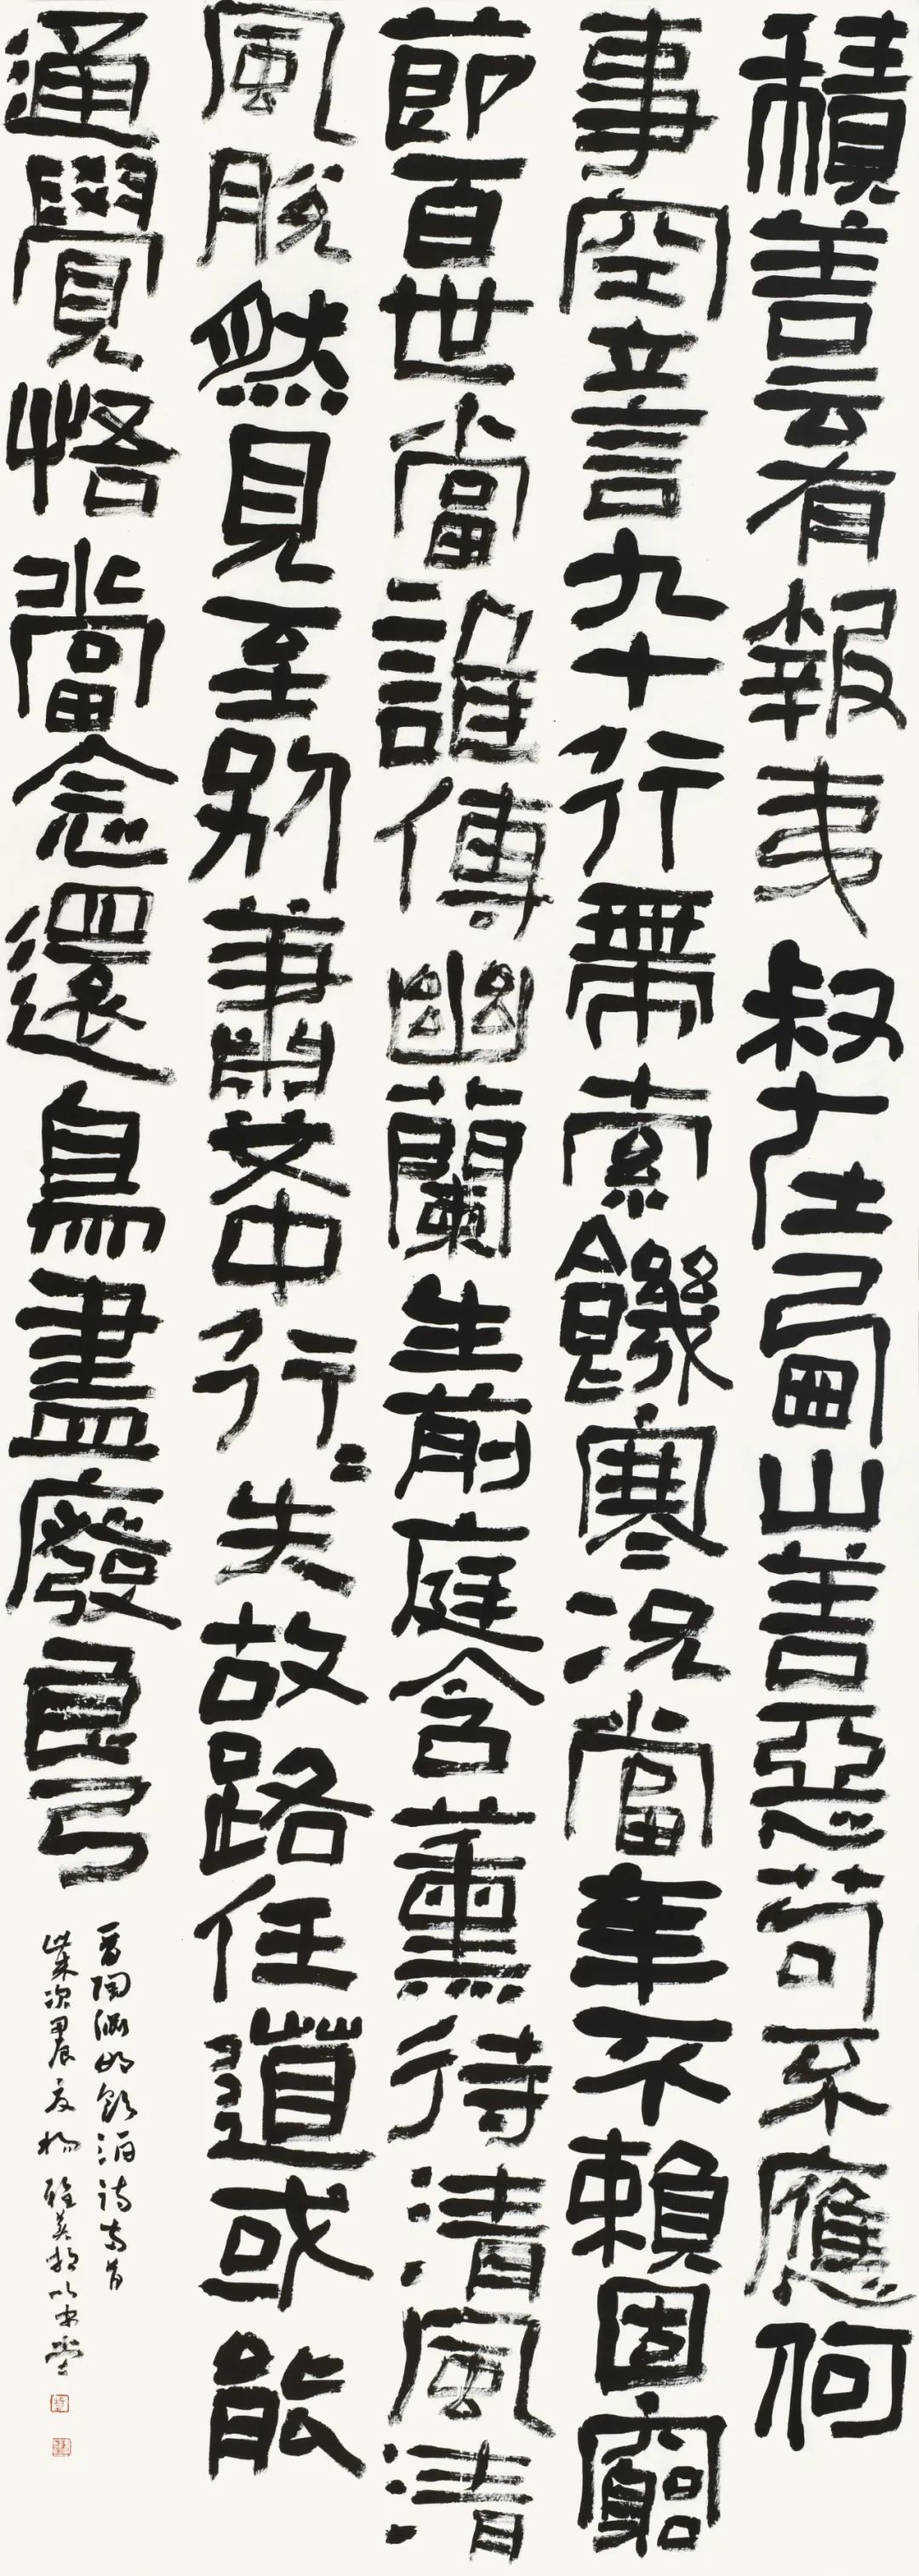 積善云有報夷叔在西山善惡苟不應何
事空立言九十行帶索饑寒況當年不賴固窮
節百世當誰傳幽蘭生前庭含薰待清風清
風脫然見至別蕭艾中行〻失故路任道或能
通覺悟當念還鳥盡廢良弓
晉陶淵明飲酒詩兩首
歲次甲辰夏楊